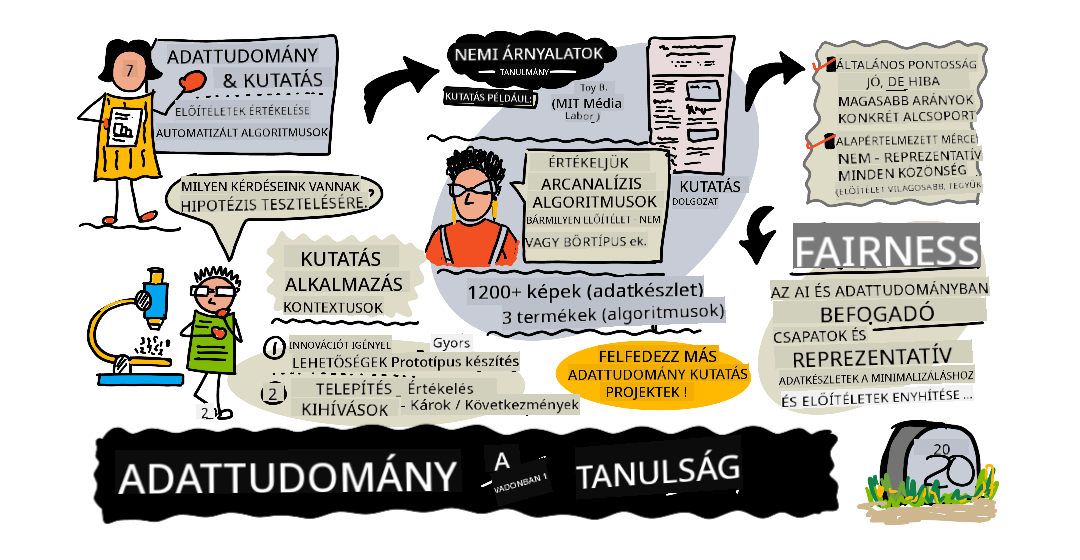 7
ADATTUDOMÁNY
& KUTATÁS
ELŐÍTÉLETEK ÉRTÉKELÉSE
AUTOMATIZÁLT ALGORITMUSOK
MILYEN KÉRDÉSEINK VANNAK ?
HIPOTÉZIS TESZTELÉSÉRE.
KUTATÁS
ALKALMAZÁS
KONTEXTUSOK
1 INNOVÁCIÓT IGÉNYEL
Gyors
LEHETŐSÉGEK Prototípus készítés
2 TELEPÍTÉS Értékelés
KIHÍVÁSOK - Károk / Következmények
2
NEMI ÁRNYALATOK
TANULMÁNY
KUTATÁS PÉLDÁUL:
Toy B.
(MIT Média
Labor.)
ÉRTÉKELJÜK
ARCANALÍZIS
ALGORITMUSOK
BÁRMILYEN ELŐÍTÉLET - NEM
VAGY BŐRTÍPUS ek.
KUTATÁS
DOLGOZAT
1200+ képek (adatkészlet)
3 termékek (algoritmusok)
FELFEDEZZ MÁS
ADATTUDOMÁNY KUTATÁS
PROJEKTEK !
ÁLTALÁNOS PONTOSSÁG
JÓ, DE HIBA
MAGASABB ARÁNYOK
KONKRÉT ALCSOPORT
ALAPÉRTELMEZETT MÉRCE
NEM - REPREZENTATÍV
MINDEN KÖZÖNSÉG
(ELŐÍTÉLET VILÁGOSABB, TEGYÜK
FAIRNESS
AZ AI ÉS ADATTUDOMÁNYBAN
BEFOGADÓ
CSAPATOK ÉS
REPREZENTATÍV
ADATKÉSZLETEK A MINIMALIZÁLÁSHOZ
ÉS ELŐÍTÉLETEK ENYHÍTÉSE ...
ADATTUDOMÁNY A TANULSÁG
VADONBAN 1
20
20